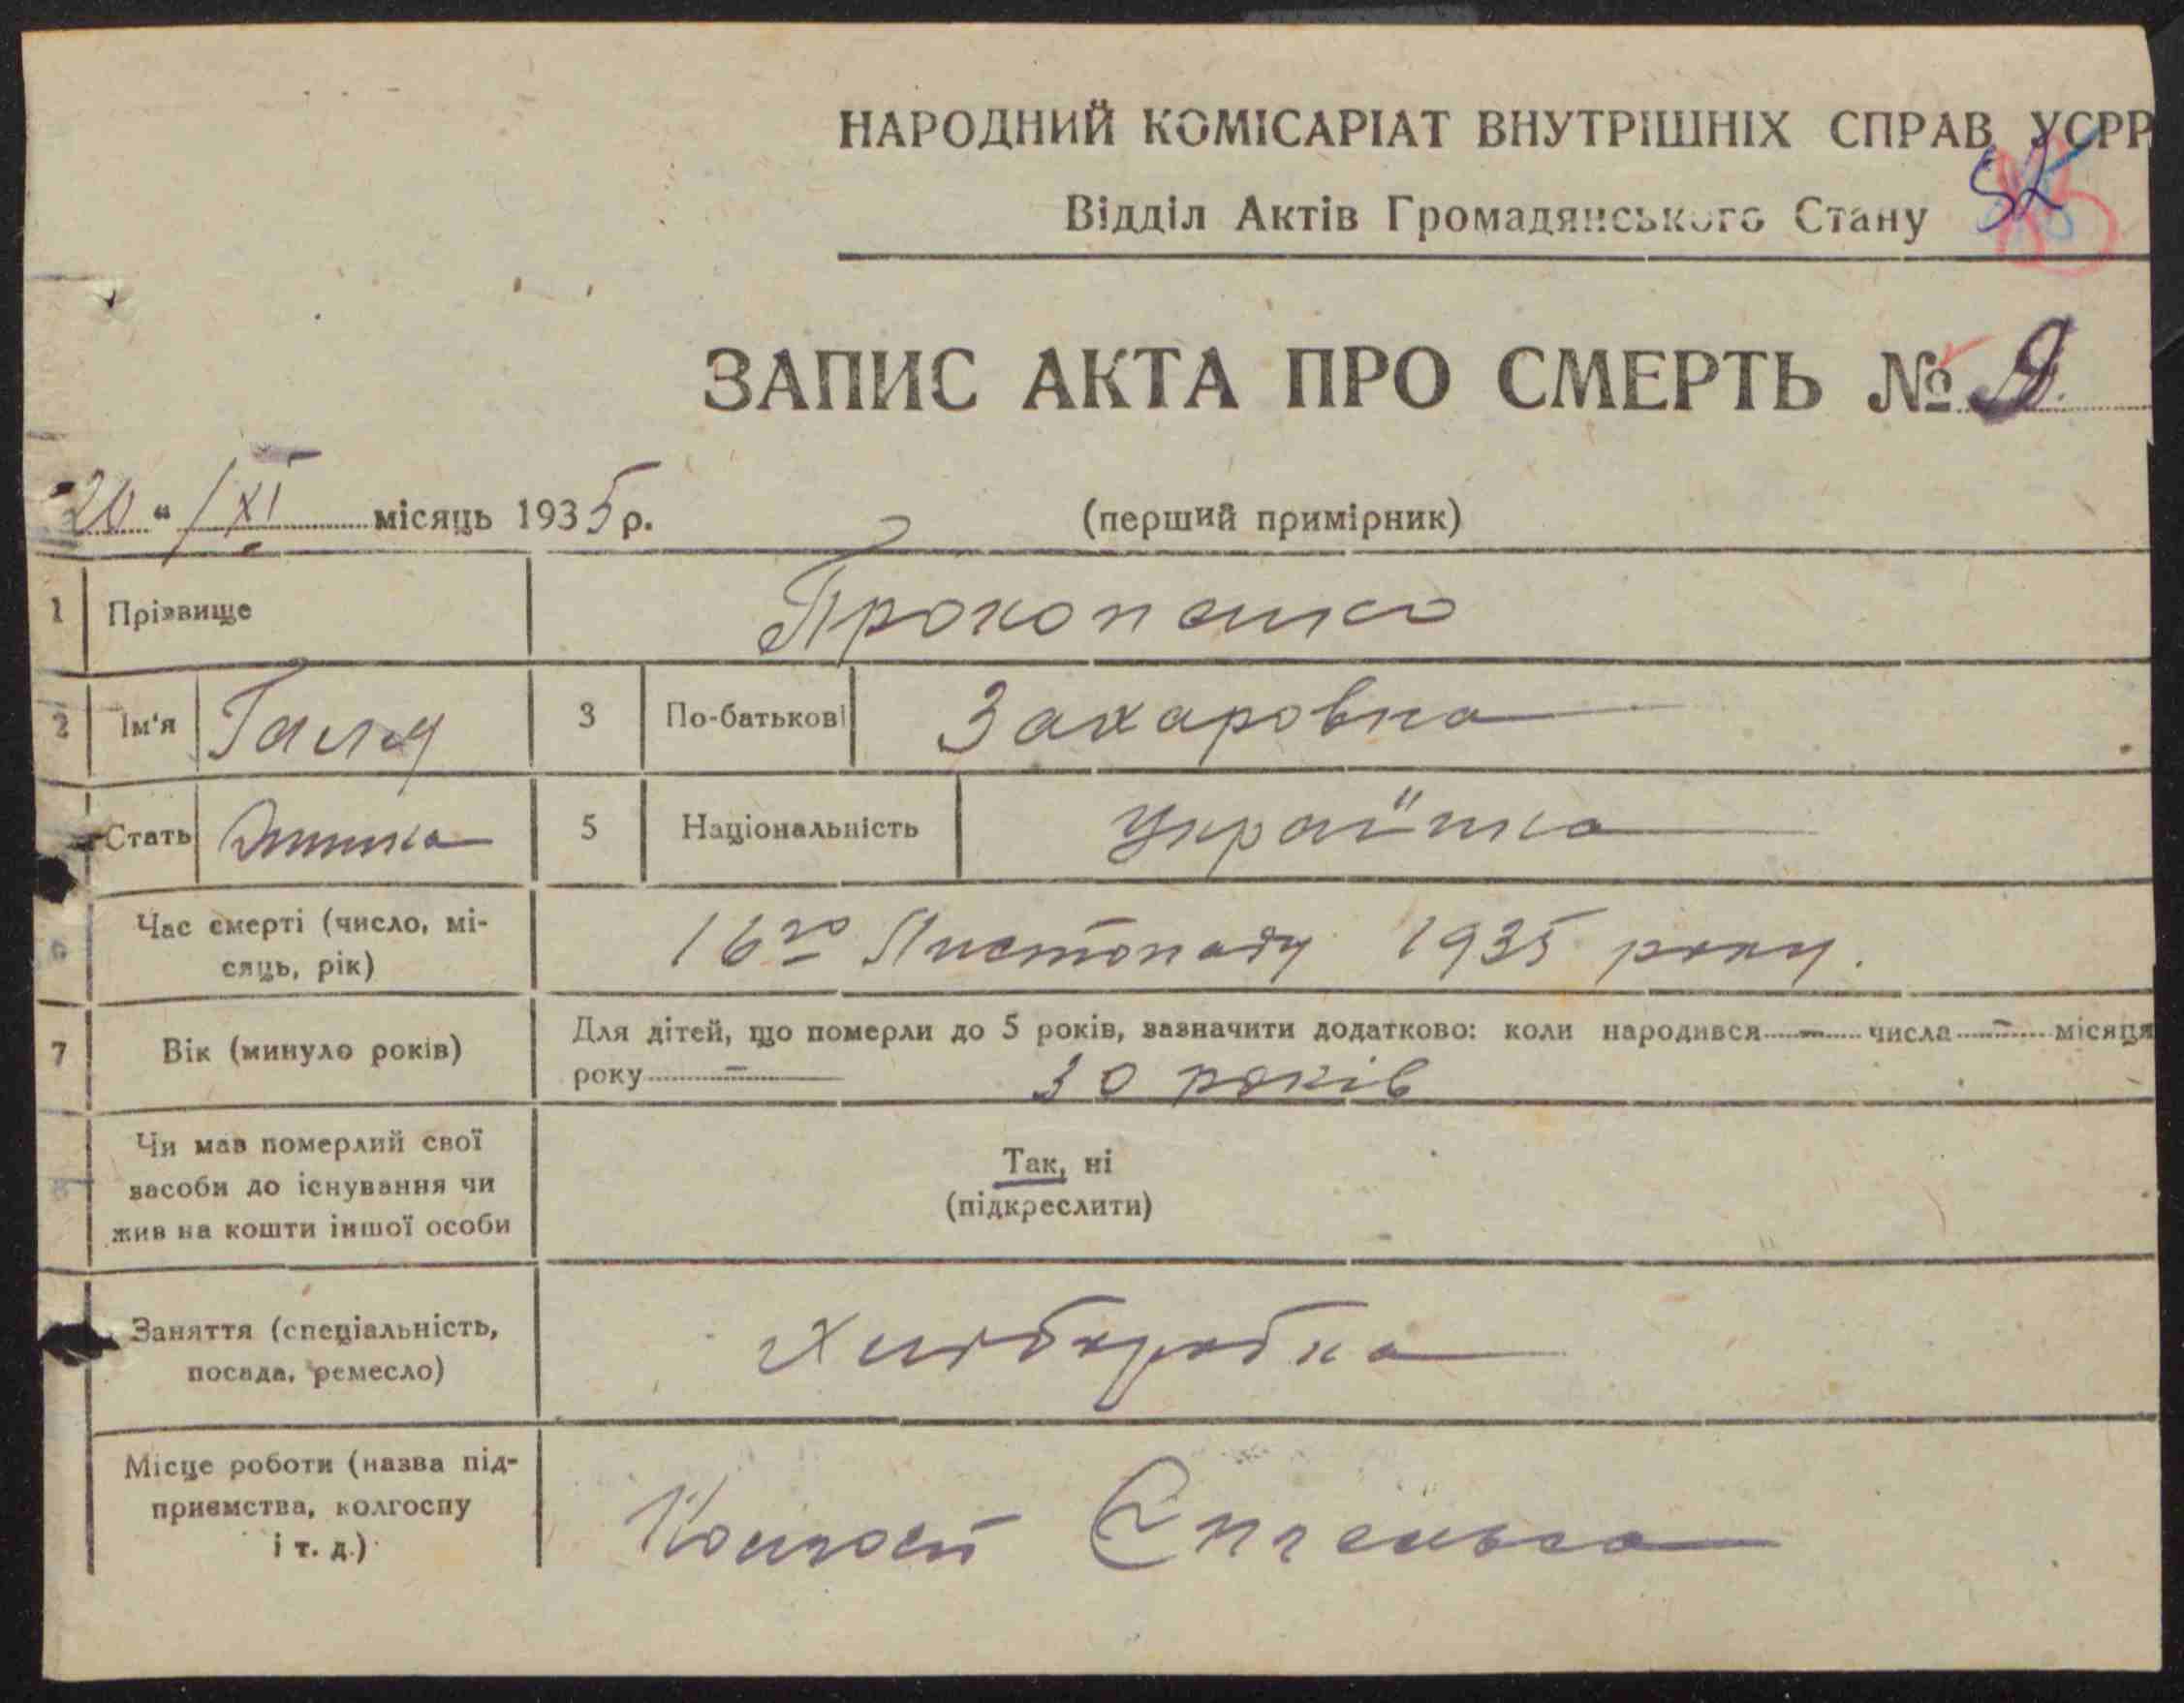 НАРОДНИЙ КОМІСАРІАТ ВНУТРІШНІХ СПРАВ УСРР
Відділ Актів Громадянського Стану
ЗАПИС АКТА ПРО СМЕРТЬ №
20 " XI місяць 1935 р. (перший примірник)
1 Прізвище Прокопенко
2 Ім'я Галя 3 По-батькові Захаровна
Стать Жінка 5 Національність Українка
6 Час смерті (число, мі-
сяць, рік) 16го Листопаду 1935 року.
7 Вік (минуло років) Для дітей, що померли до 5 років, зазначити додатково: коли народився – числа – місяця
року – 30 років
8 Чи мав померлий свої
засоби до існування чи
жив на кошти іншої особи
Так, ні
(підкреслити)
Заняття (спеціальність,
посада, ремесло) Хліборобка
Місце роботи (назва під-
приємства, колгоспу
і т. д.) Колгосп